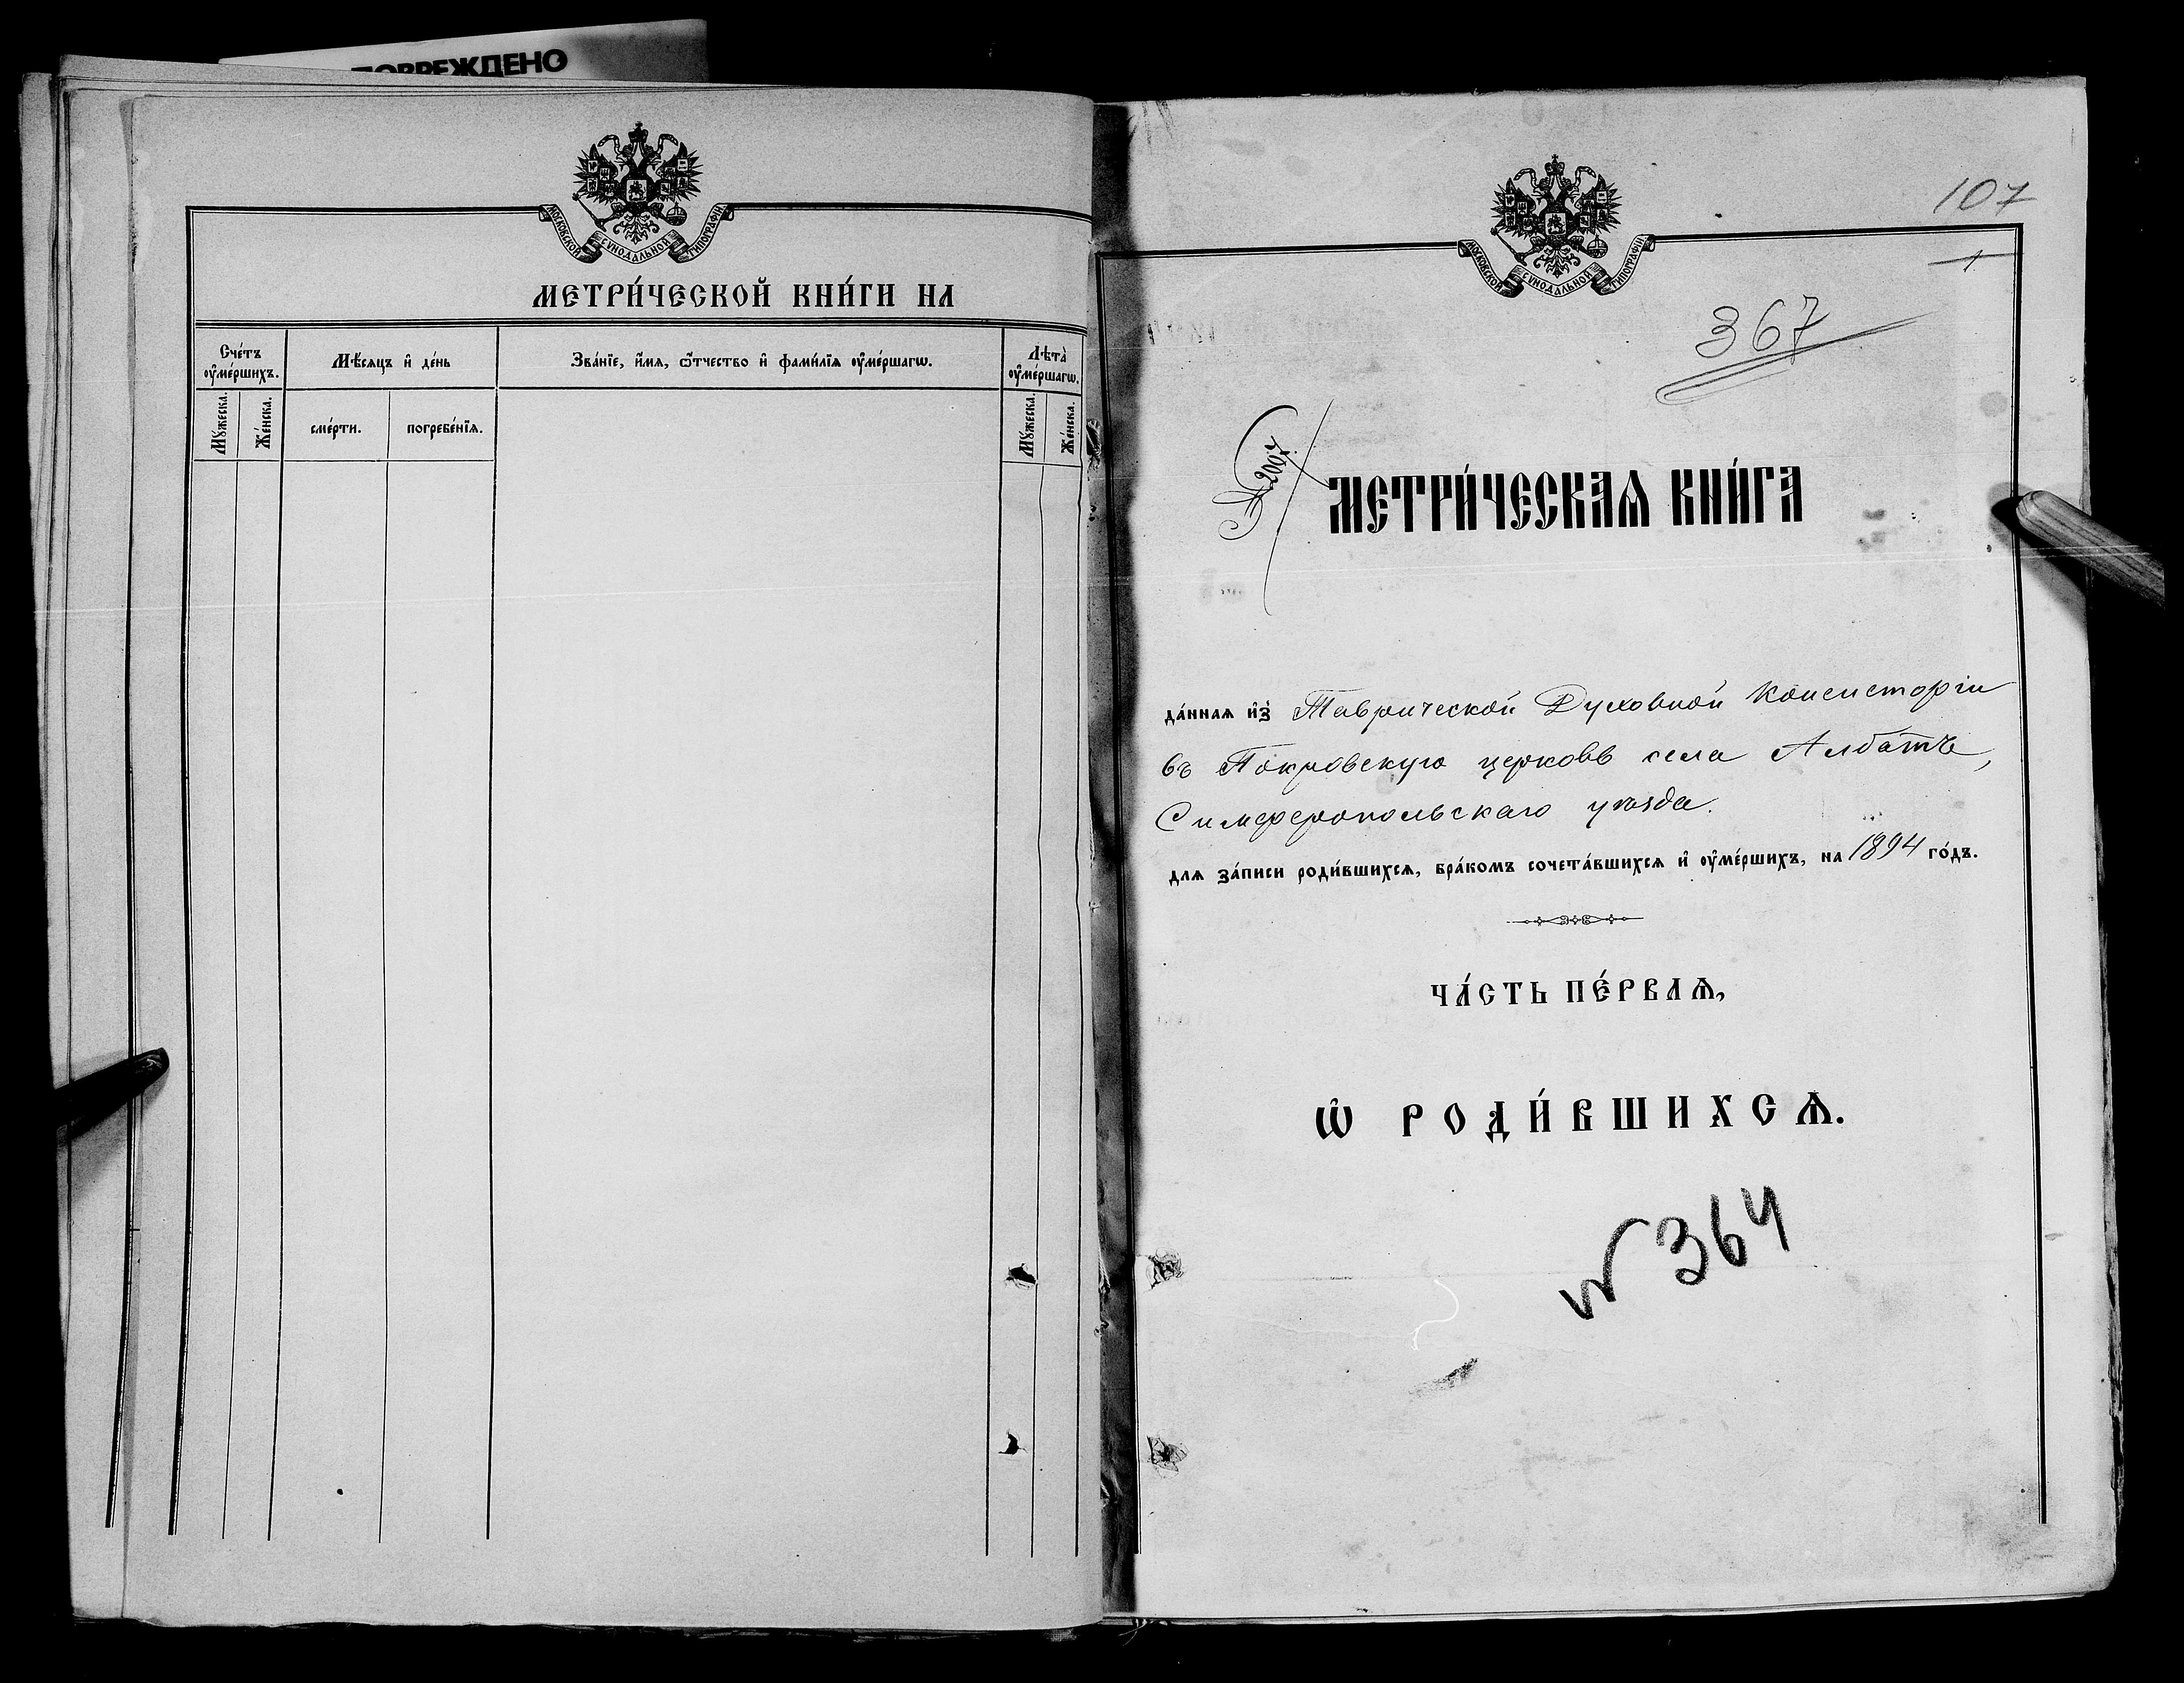 ПОВРЕЖДЕНО
МОСКОВСКОЙ СѴНОДАЛЬНОЙ ТИПОГРАФІИ
МЕТРИ́ЧЕСКОЙ КНИ́ГИ НА
Сче́тъ ᲂу҆ме́ршихъ.
Мѣ́сяцъ и҆ де́нь
Зва́нїе, и҆́мѧ, ѻ҆́тчество и҆ фами́лїѧ ᲂу҆ме́ршагѡ.
Лѣта̀ ᲂу҆ме́ршагѡ.
Мꙋ́жеска.
Же́нска.
сме́рти.
погребе́нїѧ.
Мꙋ́жеска.
Же́нска.
МОСКОВСКОЙ СѴНОДАЛЬНОЙ ТИПОГРАФІИ
107
1
367
№ 2007
МЕТРИ́ЧЕСКАѦ КНИ́ГА
да́ннаѧ и҆з̾ Таврической Духовной Консисторіи
въ Покровскую церковь села Албатъ,
Симферопольскаго уѣзда.
длѧ за́писи роди́вшихсѧ, бра́комъ сочета́вшихсѧ и҆ ᲂу҆ме́ршихъ, на 1894 го́дъ.
ЧА́СТЬ ПЕ́РВАѦ,
Ѡ҆ РОДИ́ВШИХСѦ.
№ 364